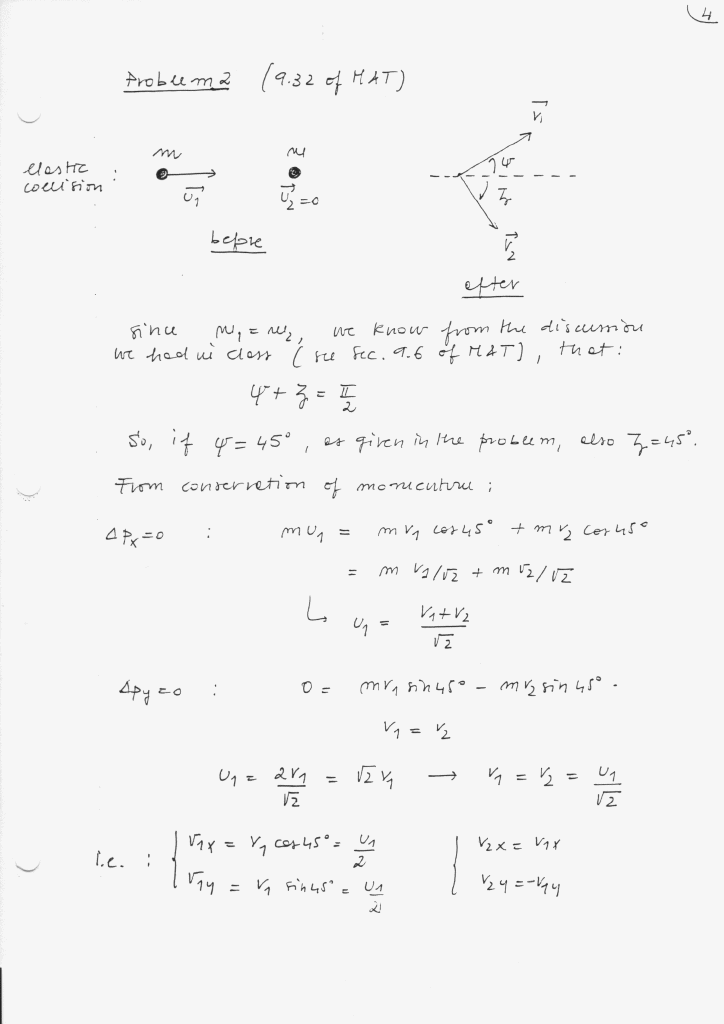 4
Problem 2 (9.32 of M&T)
elastic collision : m m
u⃗₁ u⃗₂=0
v⃗₁
ψ
ζ
v⃗₂
before
after
Since m₁ = m₂, we know from the discussion
we had in class (see Sec. 9.6 of M&T), that:
ψ + ζ = π/2
So, if ψ = 45°, as given in the problem, also ζ = 45°.
From conservation of momentum :
Δpx=0 : mu₁ = mv₁ cos45° + mv₂ cos45°
= m v₁/√2 + m v₂/√2
↳ u₁ = (v₁+v₂)/√2
Δpy=0 : 0 = mv₁ sin45° - mv₂ sin45° .
v₁ = v₂
u₁ = 2v₁/√2 = √2 v₁ → v₁ = v₂ = u₁/√2
i.e. : { v₁x = v₁ cos45° = u₁/2 { v₂x = v₁x
v₁y = v₁ sin45° = u₁/2 v₂y = -v₁y